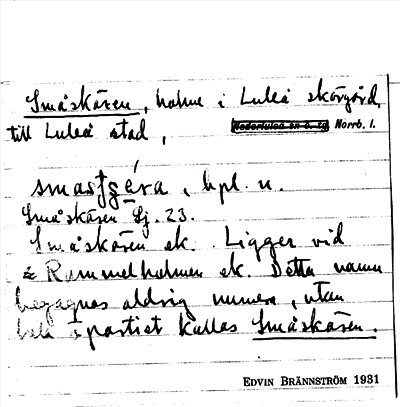 Småskären, holme i Luleå skärgård,
till Luleå stad, Nederluleå sn o. tg Norrb. l.
smås̄tjéra, bpl. n.
Småskären Sj. 23.
Småskären ek. Ligger vid
Rammelholmen ek. Detta namn
begagnas aldrig numera, utan
hela partiet kallas Småskären.
EDVIN BRÄNNSTRÖM 1931